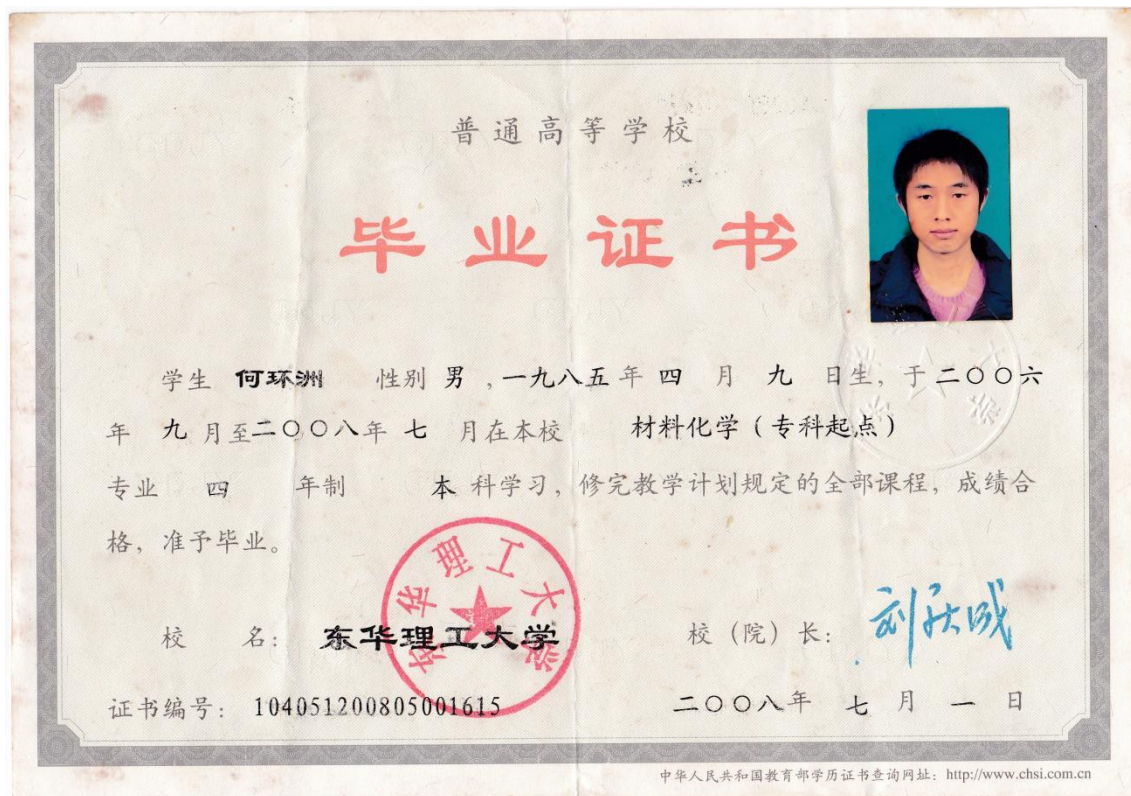 普通高等学校
毕业证书
学生 何环洲 性别 男 ,一九八五年 四 月 九 日生, 于二〇〇六
年 九 月至二〇〇八年 七 月在本校 材料化学(专科起点)
专业 四 年制 本 科学习, 修完教学计划规定的全部课程, 成绩合
格, 准予毕业。
东华理工大学
校 名: 东华理工大学 校(院)长: 刘庆成
证书编号: 104051200805001615 二〇〇八年 七 月 一 日
中华人民共和国教育部学历证书查询网址: http://www.chsi.com.cn